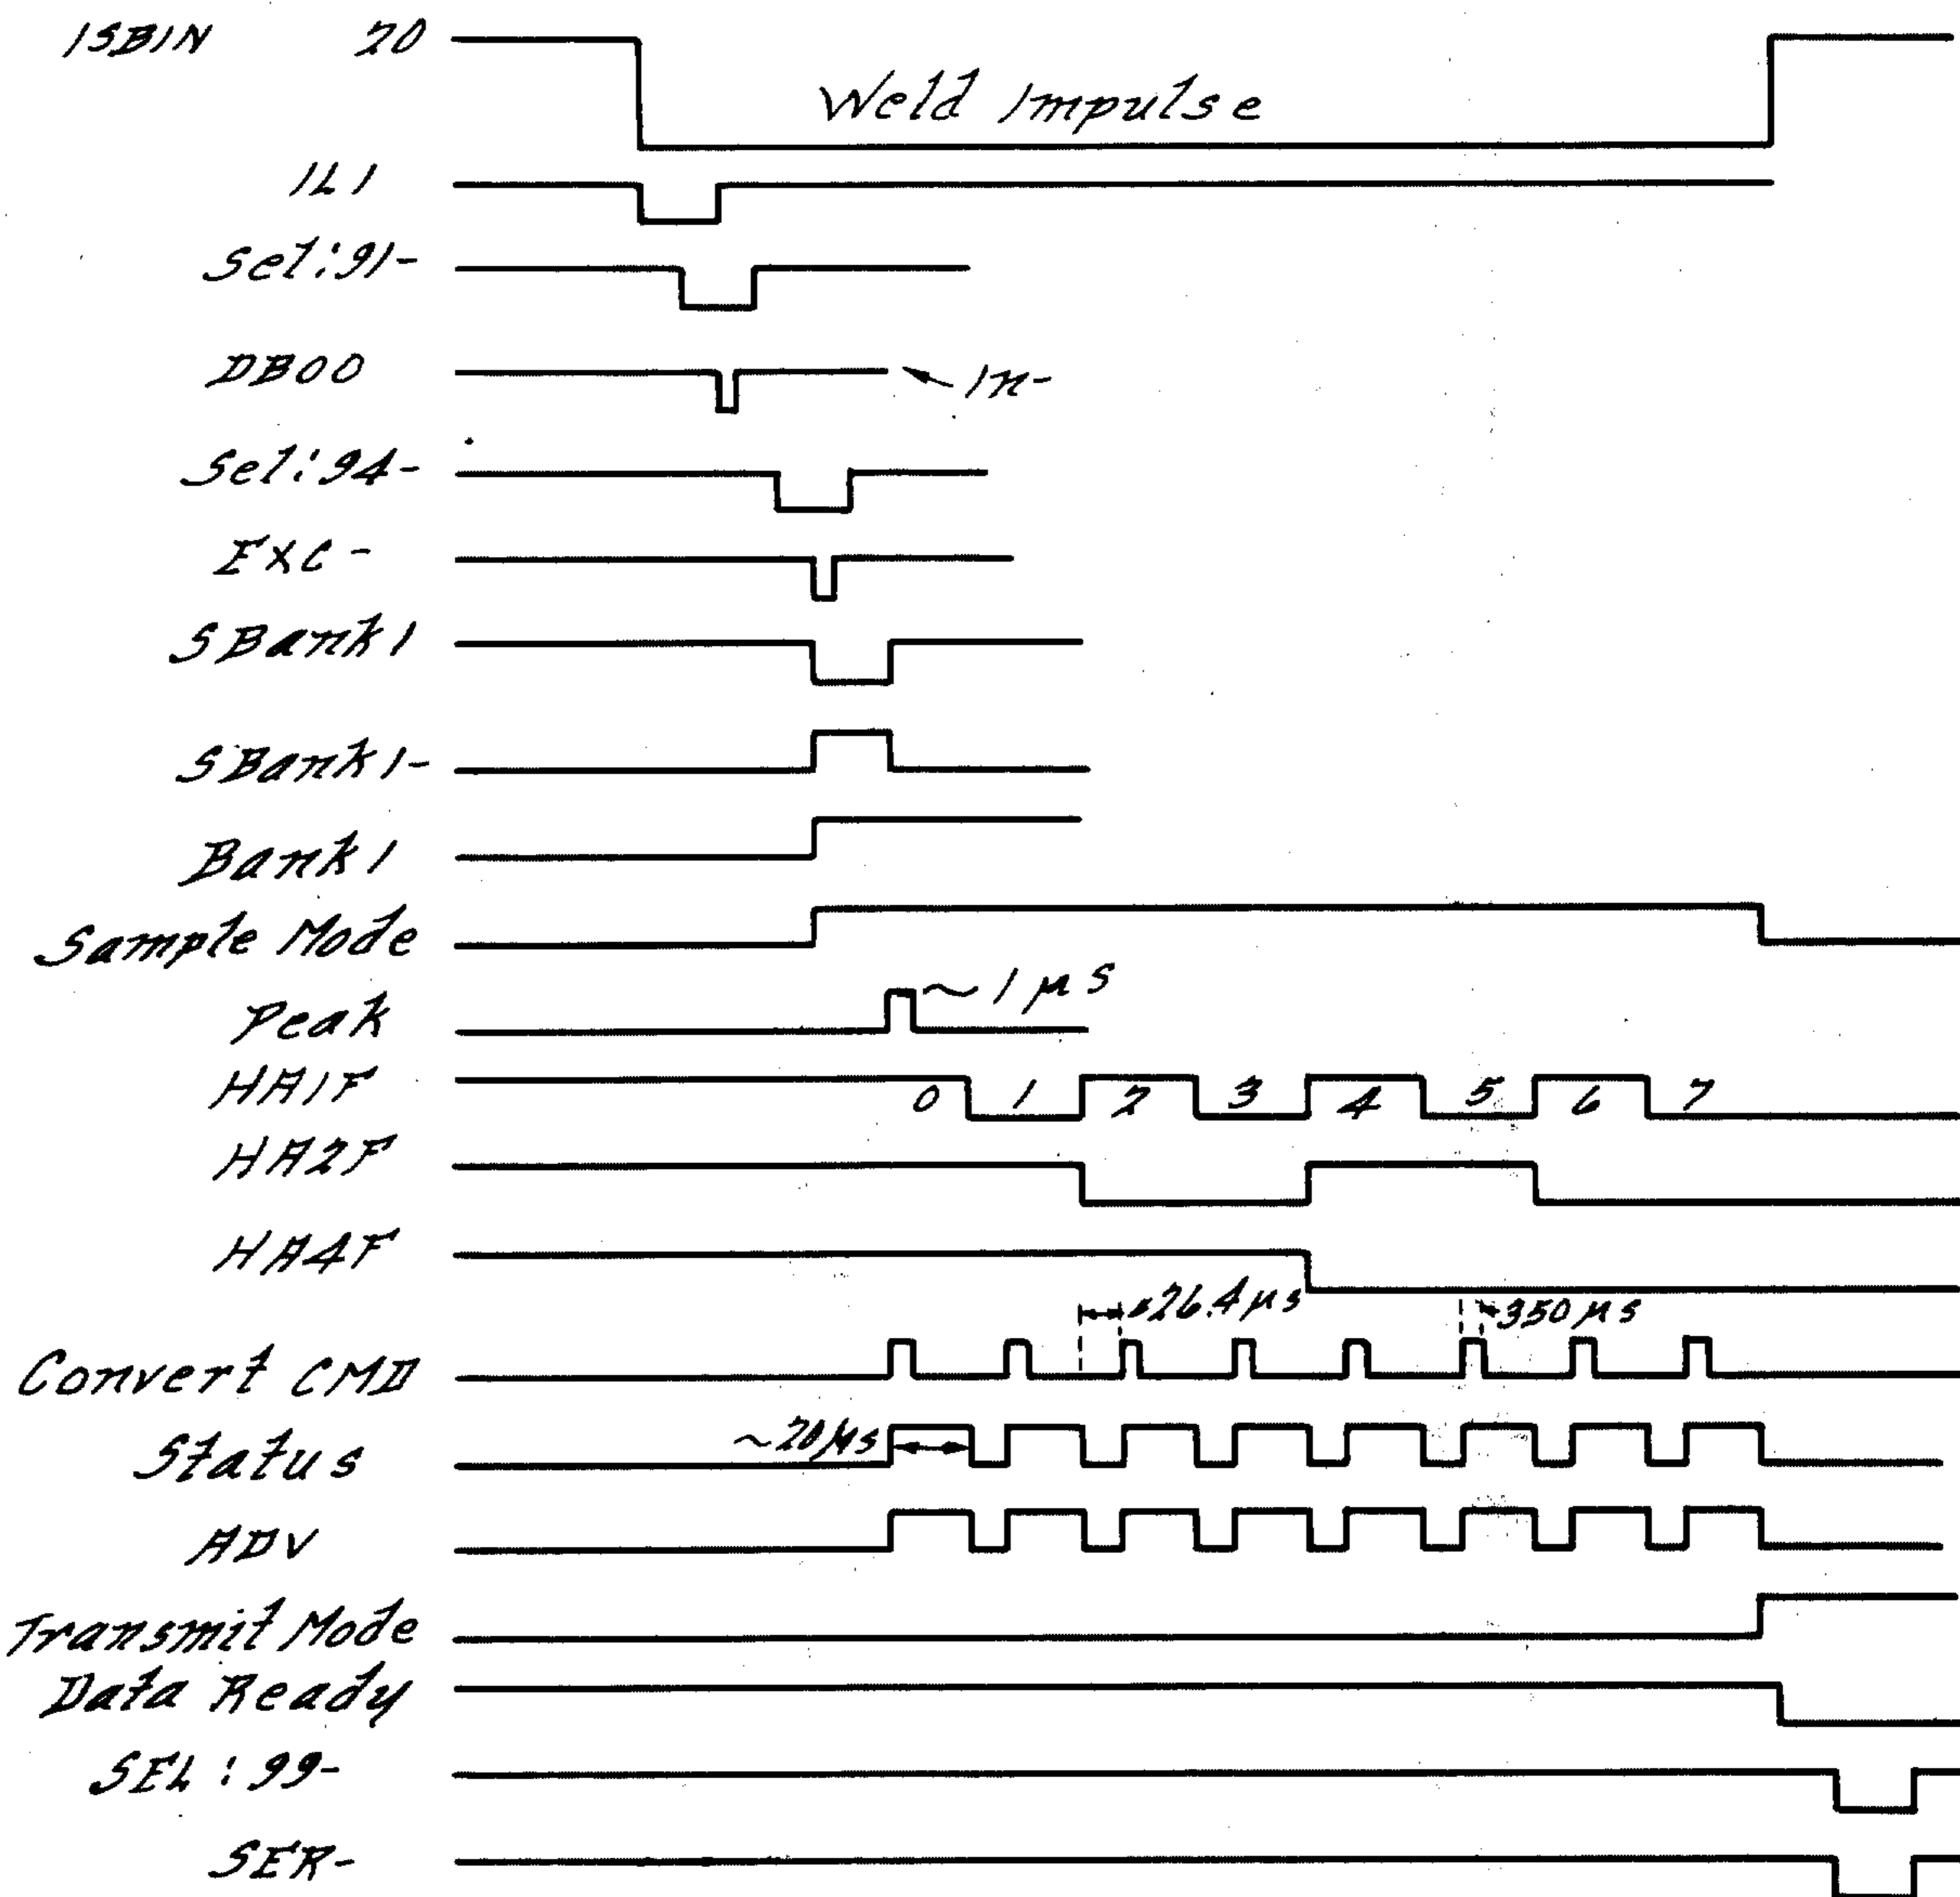 ISBIN 20
Weld Impulse
IL1
Sel:91-
DB00
In-
Sel:94-
EXC-
SBank1
SBank1-
Bank1
Sample Mode
Peak ~1μs
HA1F 0 1 2 3 4 5 6 7
HA2F
HA4F
26.4μs 350μs
Convert CMD
~20μs
Status
ADV
Transmit Mode
Data Ready
SEL:99-
SER-